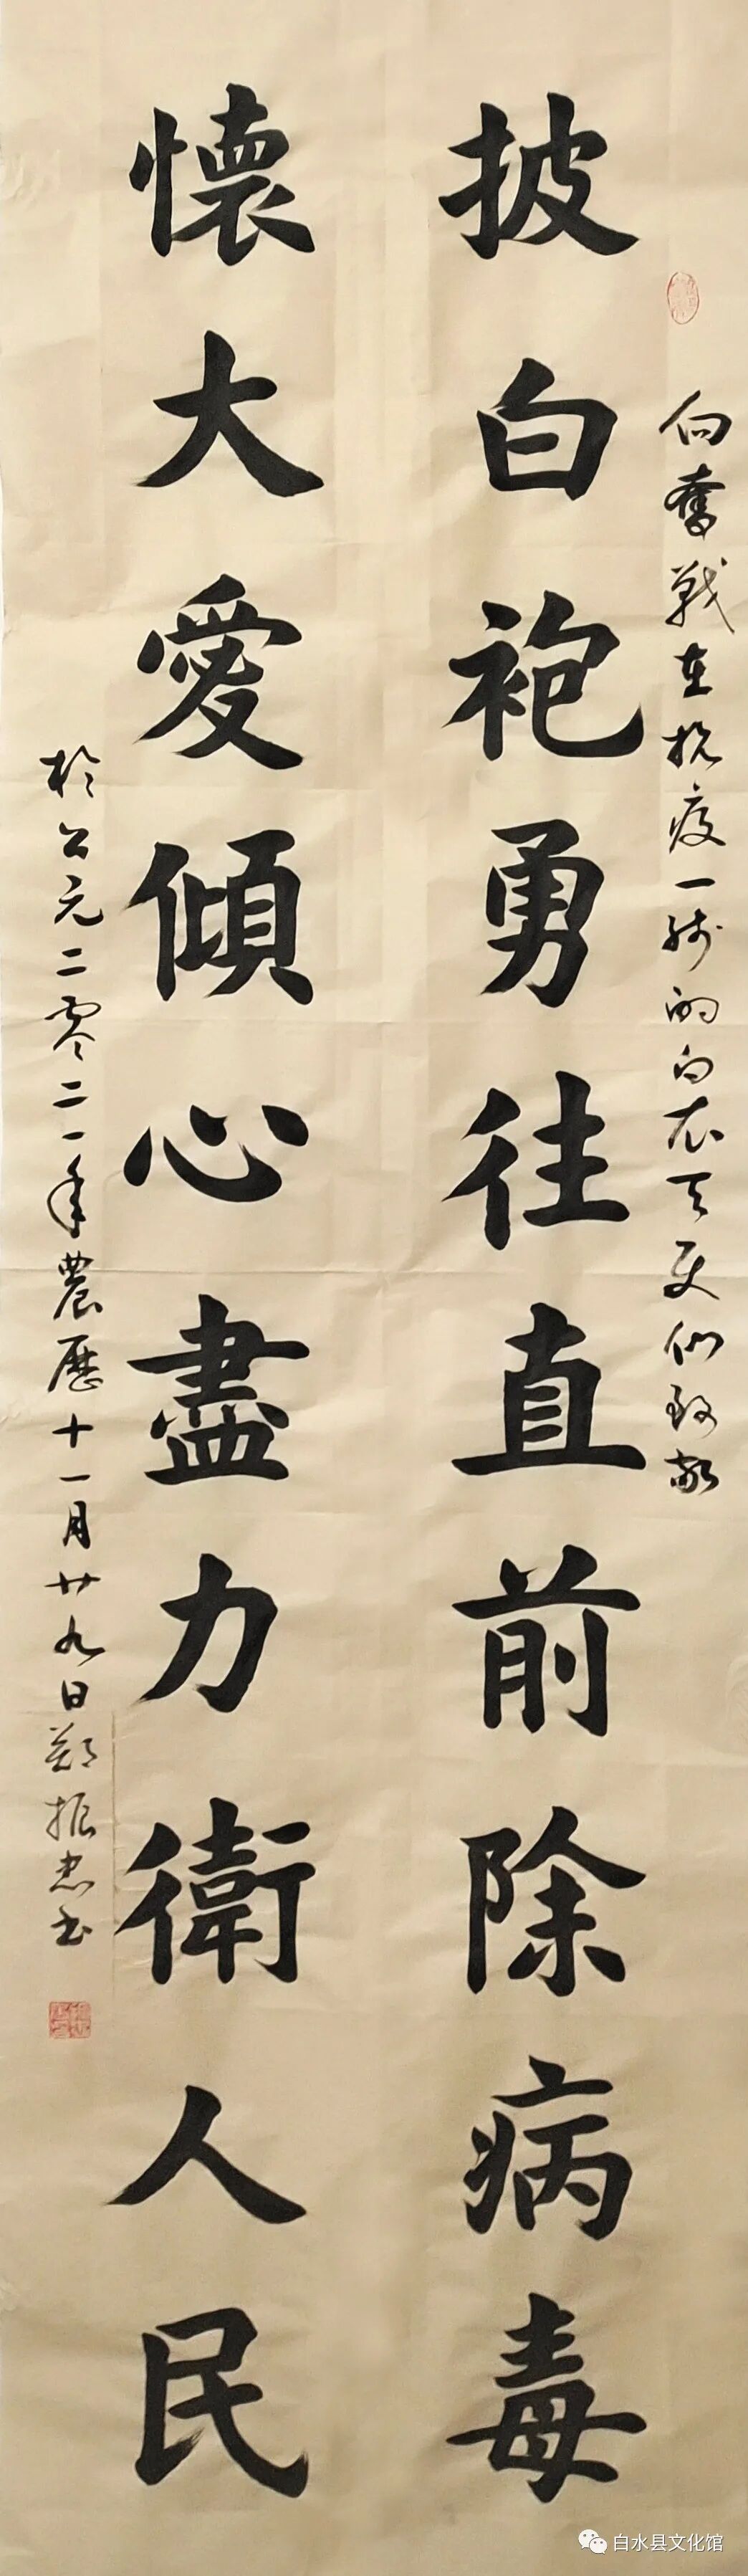 向奮戰在抗疫一线的白衣天使们致敬
披白袍勇往直前除病毒
懷大愛傾心盡力衛人民
於公元二零二一年農歷十一月廿九日鄭振忠书
白水县文化馆